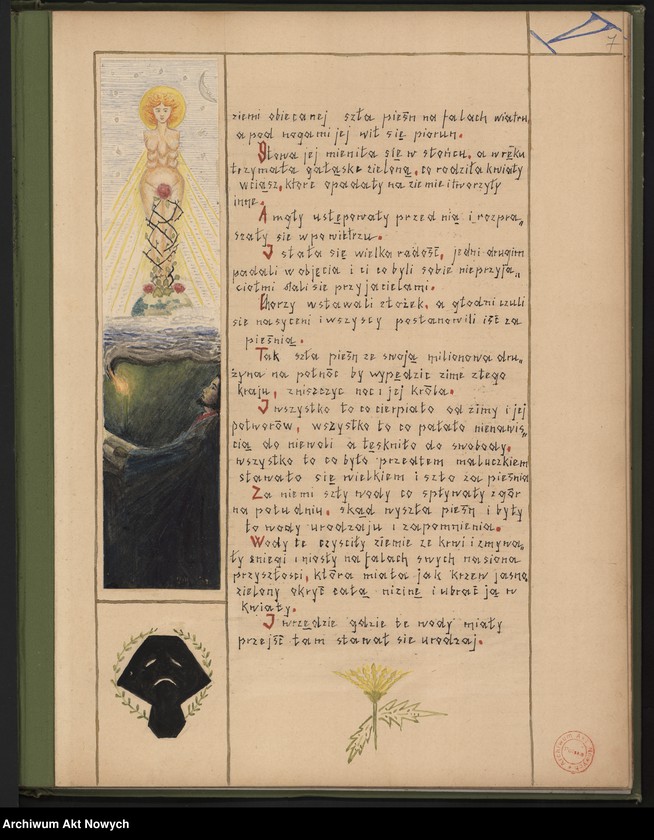 7
ziemi obiecanej szła pieśń na falach wiatru,
a pod nogami jej wił się piorun.
Głowa jej mieniła się w słońcu, a w ręku
trzymała gałąskę zieloną, co rodziła kwiaty
wciąsz, które opadały na ziemię i tworzyły
inne.
A mgły ustępowały przed nią i rozpra„
szały się w powietrzu.
I stała się wielka radość, jedni drugim
padali w objęcia i ci co byli sobie nieprzyja„
ciołmi stali się przyjacielami.
Chorzy wstawali z łożek, a głodni czuli
się nasyceni i wszyscy postanowili iść za
pieśnią.
Tak szła pieśń ze swoją milionową dru„
żyną na połnóc by wypędzić zimę z tego
kraju, zniszczyć noc i jej króla.
I wszystko to co cierpiało od zimy i jej
potworów, wszystko to co pałało nienawiś„
cią do niewoli a tęskniło do swobody,
wszystko to co było przedtem maluczkiem
stawało się wielkiem i szło za pieśnią
Za niemi szły wody co spływały z gór
na południu, skąd wyszła pieśń i były
to wody urodzaju i zapomnienia.
Wody te czyściły ziemię ze krwi i zmywa„
ły śniegi i niosły na falach swych nasiona
przyszłości, która miała jak krzew jasno
zielony okryć całą nizinę i ubrać ją w
kwiaty.
I wrzędzie gdzie te wody miały
przejść tam stawał się urodzaj.
Archiwum Akt Nowych